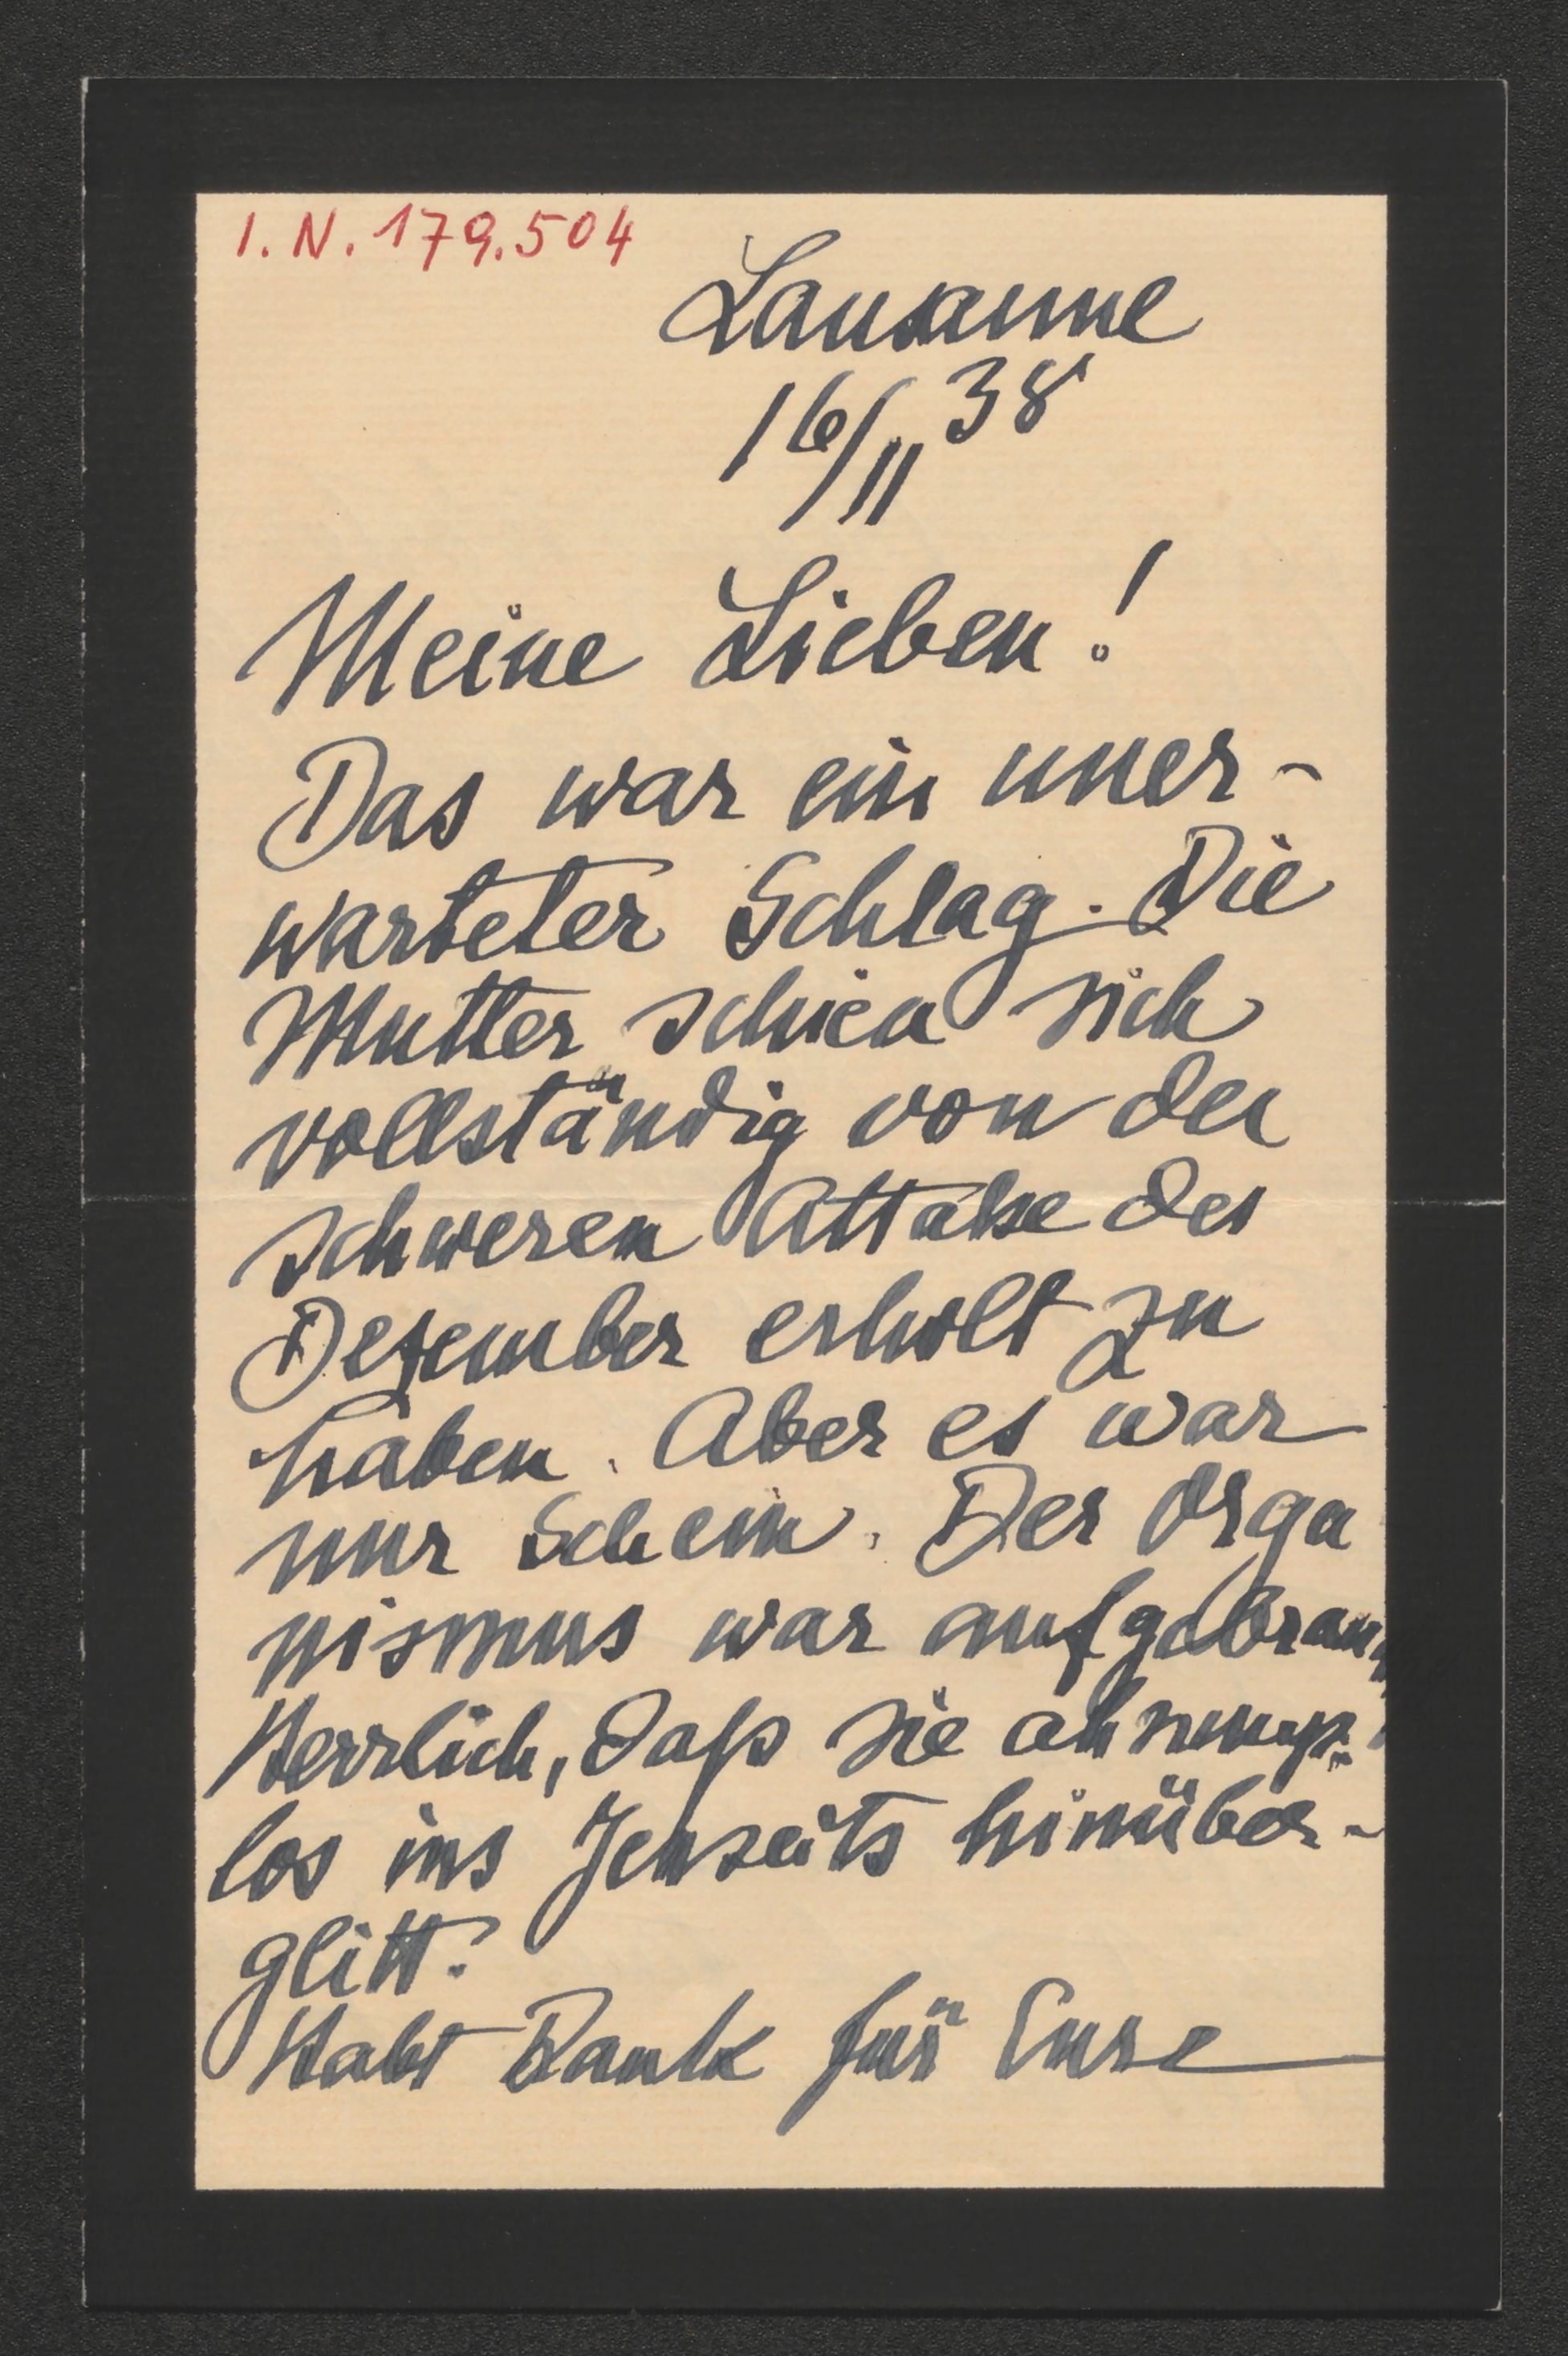 I. N. 179.504
Lausanne
16/II 38
Meine Lieben!
Das war ein uner-
warteter Schlag. Die
Mutter schien sich
vollständig von der
schweren Attake des
Dezember erholt zu
haben. Aber es war
nur Schein. Der Orga
nismus war aufgebrau
Herrlich, daß sie ahnungs
los ins Jenseits hinüber-
glitt.
Habt Dank für Eure